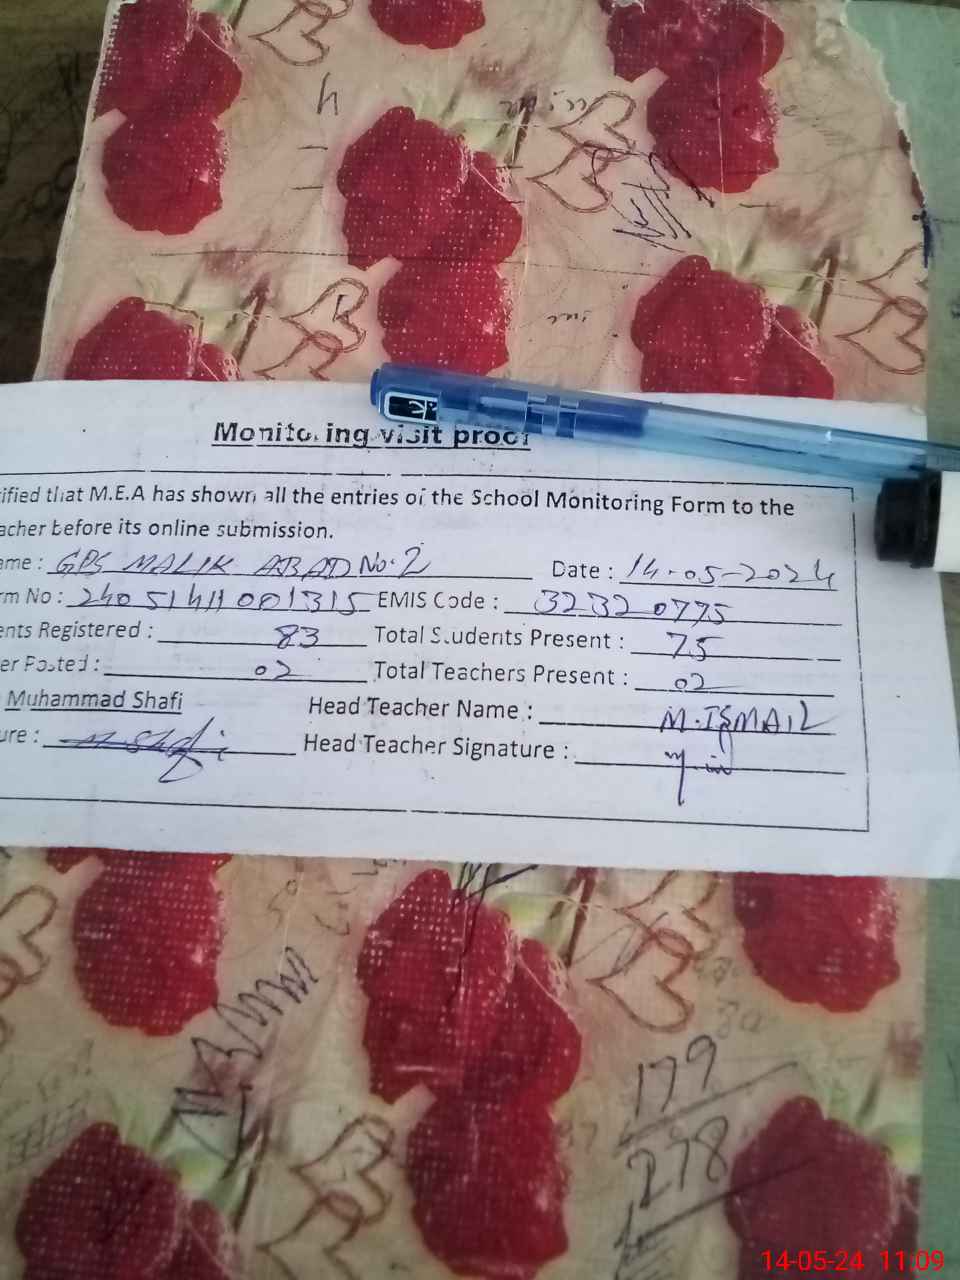 Monitoring visit proof
ified that M.E.A has shown all the entries of the School Monitoring Form to the
acher before its online submission.
ame : GPS MALIK ABAD No.2 Date : 14-05-2024
rm No : 24051411001315 EMIS Code : 32320775
ents Registered : 83 Total Students Present : 75
er Posted : 02 Total Teachers Present : 02
Muhammad Shafi Head Teacher Name : M.ISMAIL
ure : Head Teacher Signature :
179
278
14-05-24 11:09